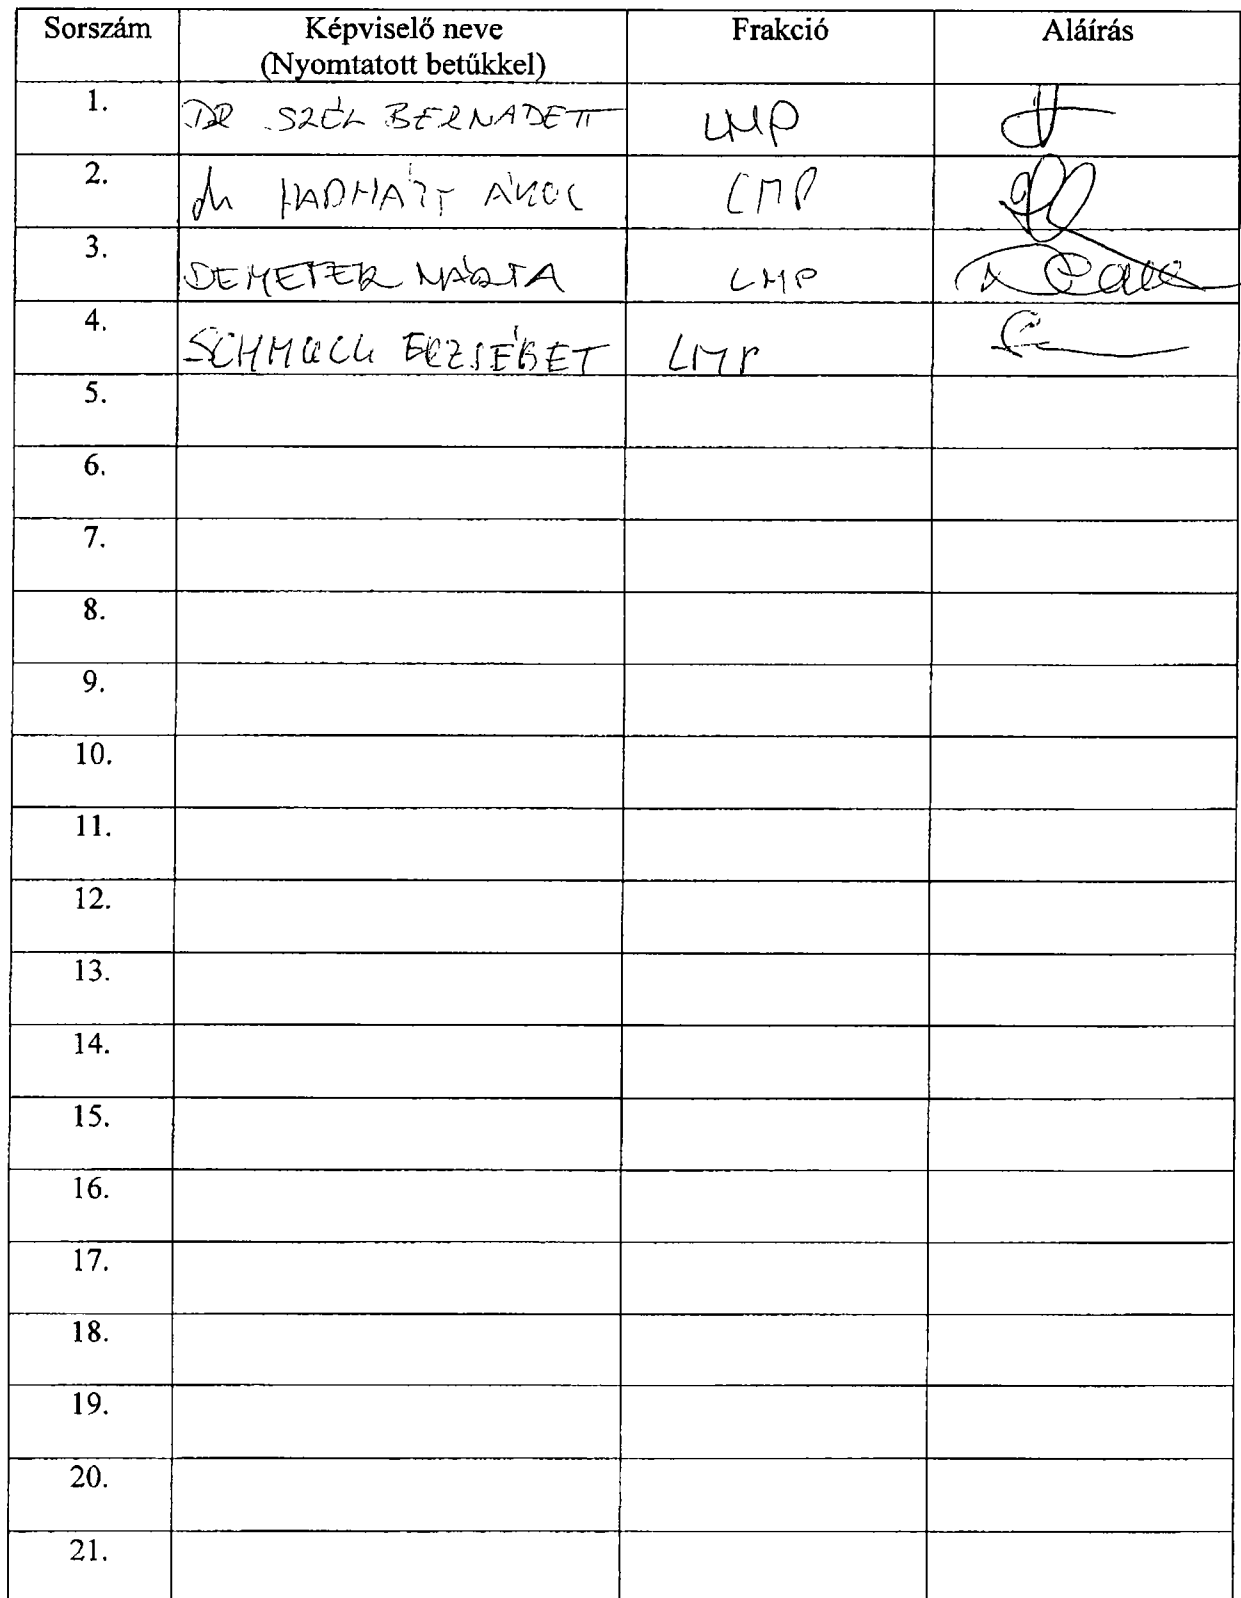 Sorszám Képviselő neve Frakció Aláírás
(Nyomtatott betűkkel)
1. DR SZÉL BERNADETT LMP
2. dr HADHÁZY ÁKOS LMP
3. DEMETER MÁRTA LMP
4. SCHMUCK ERZSÉBET LMP
5.
6.
7.
8.
9.
10.
11.
12.
13.
14.
15.
16.
17.
18.
19.
20.
21.